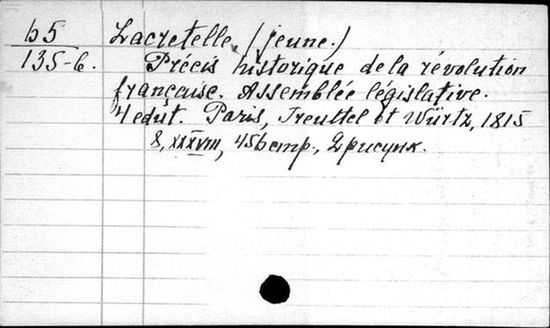 b5
135-6.
Lacretelle, (jeune.)
Précis historique de la révolution
française. Assemblée législative.
4 edit. Paris, Treuttel et Würtz, 1815
8, XXXVIII, 456 стр., 2 рисунк.